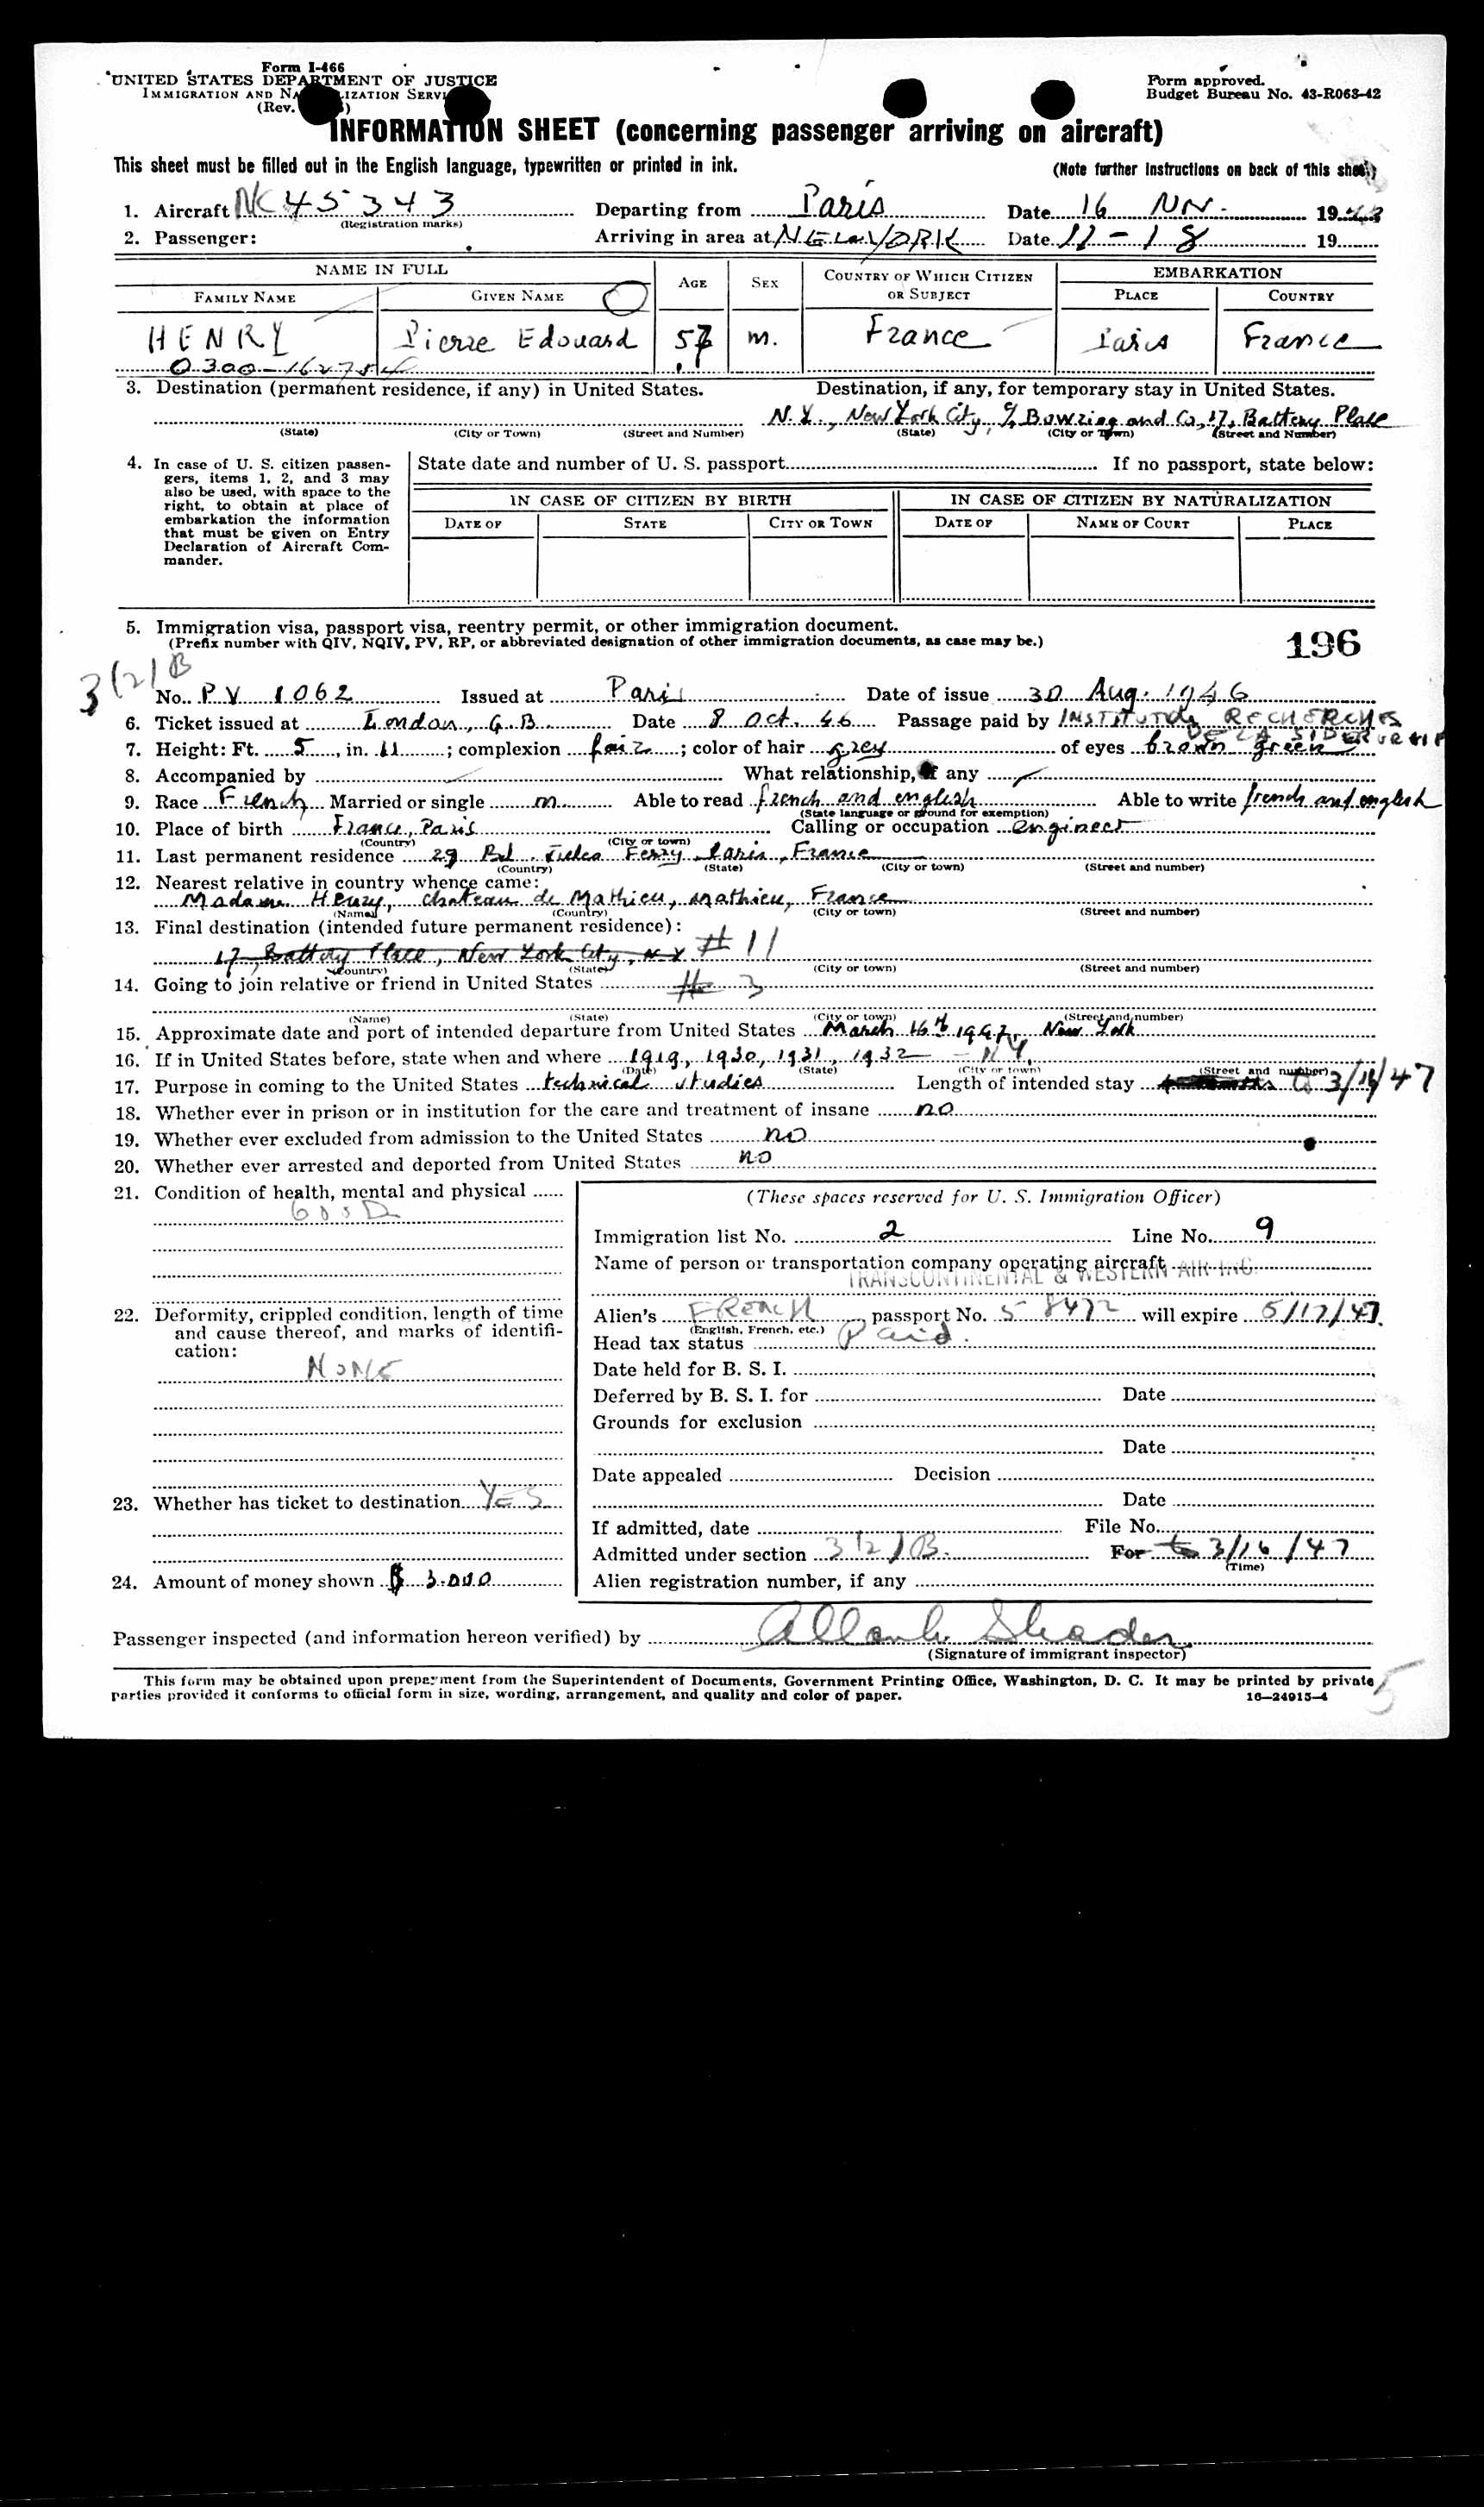 Form I-466
UNITED STATES DEPARTMENT OF JUSTICE
IMMIGRATION AND NA IZATION SERVI
(Rev. )
Form approved.
Budget Bureau No. 43-R063-42
INFORMATION SHEET (concerning passenger arriving on aircraft)
This sheet must be filled out in the English language, typewritten or printed in ink.
(Note further instructions on back of this sheet)
1. Aircraft NC 45343 Departing from Paris Date 16 19
(Registration marks)
2. Passenger: Arriving in area at NEW YORK Date 11-18 19
NAME IN FULL AGE SEX COUNTRY OF WHICH CITIZEN OR SUBJECT EMBARKATION
FAMILY NAME GIVEN NAME PLACE COUNTRY
HENRY Pierre Edouard 57 m. France Paris France
0300-162754
3. Destination (permanent residence, if any) in United States. Destination, if any, for temporary stay in United States.
N.Y., New York City, c/o Bowring and Co, 17, Battery Place
(State) (City or Town) (Street and Number) (State) (City or Town) (Street and Number)
4. In case of U. S. citizen passengers, items 1, 2, and 3 may also be used, with space to the right, to obtain at place of embarkation the information that must be given on Entry Declaration of Aircraft Commander.
State date and number of U. S. passport If no passport, state below:
IN CASE OF CITIZEN BY BIRTH IN CASE OF CITIZEN BY NATURALIZATION
DATE OF STATE CITY OR TOWN DATE OF NAME OF COURT PLACE
5. Immigration visa, passport visa, reentry permit, or other immigration document.
(Prefix number with QIV, NQIV, PV, RP, or abbreviated designation of other immigration documents, as case may be.)
196
3(2)B
No. PV 1062 Issued at Paris Date of issue 30 Aug. 1946
6. Ticket issued at London, G.B. Date 8 Oct. 46 Passage paid by INSTITUT de RECHERCHES
DE LA SIDERURGIE
7. Height: Ft. 5, in. 11; complexion fair; color of hair grey of eyes brown green
8. Accompanied by What relationship, if any
9. Race French Married or single m. Able to read french and english Able to write french and english
(State language or ground for exemption)
10. Place of birth France, Paris Calling or occupation engineer
(Country) (City or town)
11. Last permanent residence 29 Bd. Jules Ferry Paris, France
(Country) (State) (City or town) (Street and number)
12. Nearest relative in country whence came:
Madame Henry, chateau de Mathieu, Mathieu, France
(Name) (Country) (City or town) (Street and number)
13. Final destination (intended future permanent residence):
17, Battery Place, New York City, N.Y. #11
(Country) (State) (City or town) (Street and number)
14. Going to join relative or friend in United States # 3
(Name) (State) (City or town) (Street and number)
15. Approximate date and port of intended departure from United States March 16th 1947, New York
16. If in United States before, state when and where 1919, 1930, 1931, 1932 - N.Y.
(Date) (State) (City or town) (Street and number)
17. Purpose in coming to the United States technical studies Length of intended stay to 3/16/47
18. Whether ever in prison or in institution for the care and treatment of insane no
19. Whether ever excluded from admission to the United States no
20. Whether ever arrested and deported from United States no
21. Condition of health, mental and physical
GOOD
22. Deformity, crippled condition, length of time and cause thereof, and marks of identification:
NONE
23. Whether has ticket to destination YES
24. Amount of money shown $ 3.000
(These spaces reserved for U. S. Immigration Officer)
Immigration list No. 2 Line No. 9
Name of person or transportation company operating aircraft
TRANSCONTINENTAL & WESTERN AIR INC.
Alien's FRENCH passport No. 58472 will expire 5/17/47.
(English, French, etc.)
Head tax status Paid.
Date held for B. S. I.
Deferred by B. S. I. for Date
Grounds for exclusion
Date
Date appealed Decision
Date
If admitted, date File No.
Admitted under section 3(2)B. For to 3/16/47
(Time)
Alien registration number, if any
Passenger inspected (and information hereon verified) by
(Signature of immigrant inspector)
This form may be obtained upon prepayment from the Superintendent of Documents, Government Printing Office, Washington, D. C. It may be printed by private
parties provided it conforms to official form in size, wording, arrangement, and quality and color of paper. 16—24915-4
5